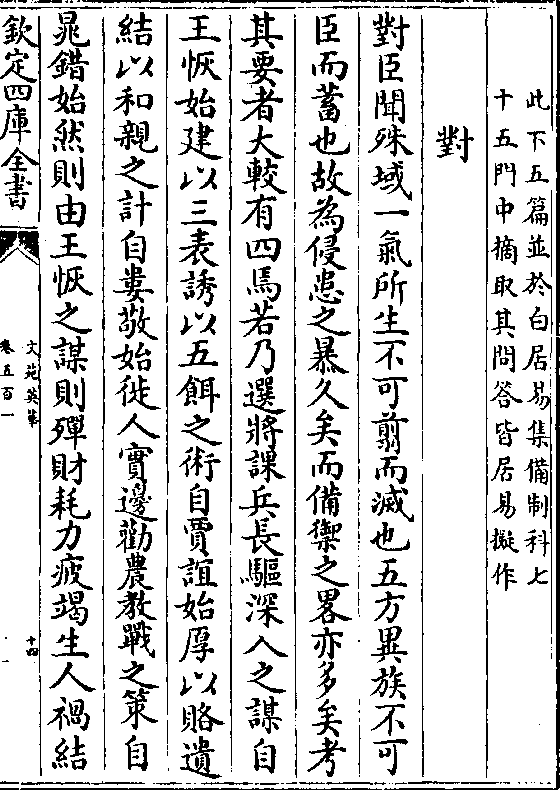 此下五篇並於白居易集備制科七
十五門中摘取其問答皆居易擬作
對
對臣聞殊域一氣所生不可翦而滅也五方異族不可
臣而蓄也故為侵患之暴久矣而備禦之畧亦多矣考
其要者大較有四焉若乃選將課兵長驅深入之謀自
王恢始建以三表誘以五餌之術自賈誼始厚以賂遺
結以和親之計自婁敬始徙人實邊勸農教戰之策自
晁錯始然則由王恢之謀則殫財耗力疲竭生人禍結
欽定四庫全書
文苑英華
卷五百一
十四